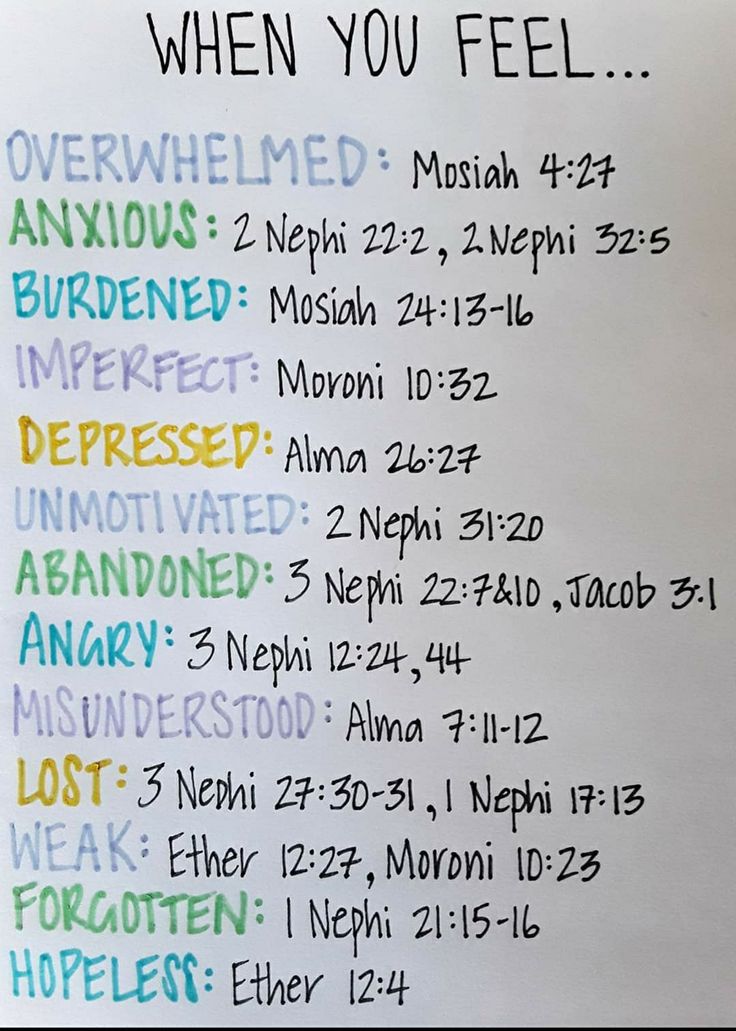 WHEN YOU FEEL...
OVERWHELMED: Mosiah 4:27
ANXIOUS: 2 Nephi 22:2, 2 Nephi 32:5
BURDENED: Mosiah 24:13-16
IMPERFECT: Moroni 10:32
DEPRESSED: Alma 26:27
UNMOTIVATED: 2 Nephi 31:20
ABANDONED: 3 Nephi 22:7&10, Jacob 3:1
ANGRY: 3 Nephi 12:24, 44
MISUNDERSTOOD: Alma 7:11-12
LOST: 3 Nephi 27:30-31, 1 Nephi 17:13
WEAK: Ether 12:27, Moroni 10:23
FORGOTTEN: 1 Nephi 21:15-16
HOPELESS: Ether 12:4